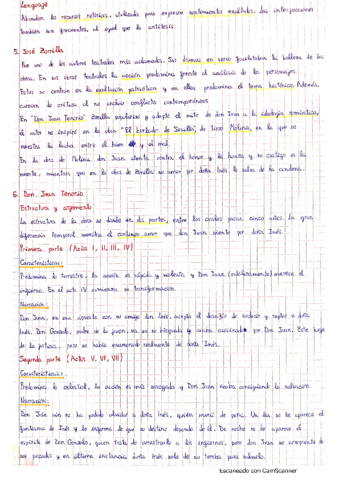 Lenguaje
Abundan los recursos retóricos, utilizados para expresar sentimientos exaltados. Las interjecciones
también son frecuentes, al igual que la antítesis.
5. José Zorrilla
Fue uno de los autores teatrales más aclamados. Sus dramas en verso facilitaban la belleza de las
obras. En sus obras teatrales la acción predomina frente al análisis de los personajes.
Estas se centran en la exaltación patriótica y en ellas predomina el tema histórico. Además,
carecen de crítica al no incluir conflictos contemporáneos.
En "Don Juan Tenorio" Zorrilla populariza y adapta el mito de don Juan a la ideología romántica,
el autor se inspira en la obra "El burlador de Sevilla", de Tirso Molina, en la que se
muestra la lucha entre el bien y el mal.
En la obra de Molina don Juan atenta contra el honor y la honra y su castigo es la
muerte, mientras que en la obra de Zorrilla su amor por doña Inés lo salva de la condena.
6. Don Juan Tenorio
Estructura y argumento
La estructura de la obra se divide en dos partes, entre las cuales pasan cinco años. La gran
diferencia temporal muestra el continuo amor que don Juan siente por doña Inés.
Primera parte (Actos I, II, III, IV)
Características:
Predomina lo terrestre, la acción es rápida y violenta y Don Juan merece el
infierno. En el acto IV comienza su transformación.
Narración:
Don Juan, en una apuesta con su amigo don Luis, acepta el desafío de seducir y raptar a doña
Inés. Don Gonzalo, padre de la joven, va en su búsqueda y acaba asesinado por Don Juan. Este huye
de la justicia, pero se había enamorado realmente de doña Inés.
Segunda parte (Actos V, VI, VII)
Características:
Predomina lo celestial, la acción es más sosegada y Don Juan acaba consiguiendo la salvación.
Narración:
Don Juan aún no ha podido olvidar a doña Inés, quien murió de pena. Un día se le aparece el
fantasma de Inés y le informa de que su destino depende de él. De noche se le aparece el
espíritu de Don Gonzalo, quien trata de arrastrarlo a los infiernos, pero don Juan se arrepiente de
sus pecados y en última instancia doña Inés sale de su tumba para salvarlo.
Escaneado con CamScanner